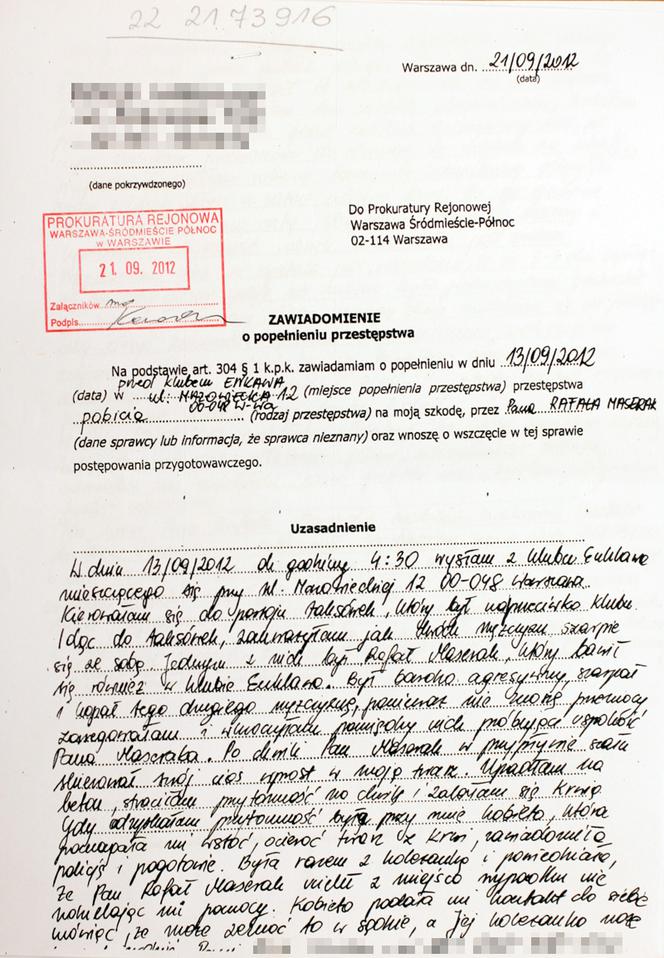 22 21 73 916
Warszawa dn. 21/09/2012
(data)
(dane pokrzywdzonego)
PROKURATURA REJONOWA
WARSZAWA-ŚRÓDMIEŚCIE PÓŁNOC
w WARSZAWIE
21. 09. 2012
Załączników
Podpis
Do Prokuratury Rejonowej
Warszawa Śródmieście-Północ
02-114 Warszawa
ZAWIADOMIENIE
o popełnieniu przestępstwa
Na podstawie art. 304 § 1 k.p.k. zawiadamiam o popełnieniu w dniu 13/09/2012
przed klubem ENKLAWA
(data) w ul. MAZOWIECKA 12 (miejsce popełnienia przestępstwa) przestępstwa
00-048 W-WA
pobicia (rodzaj przestępstwa) na moją szkodę, przez Pana RAFAŁA MASERAK
(dane sprawcy lub informacja, że sprawca nieznany) oraz wnoszę o wszczęcie w tej sprawie
postępowania przygotowawczego.
Uzasadnienie
W dniu 13/09/2012 ok godziny 4:30 wyszłam z klubu Enklawa
mieszczącego się przy ul. Mazowieckiej 12 00-048 Warszawa.
Kierowałam się do postoju taksówek, który był naprzeciwko klubu.
Idąc do taksówek, zauważyłam jak dwóch mężczyzn szarpie
się ze sobą. Jednym z nich był Rafał Maserak, który bawił
się również w klubie Enklawa. Był bardzo agresywny, szarpał
i kopał tego drugiego mężczyznę, ponieważ nie znoszę przemocy
zareagowałam i wkroczyłam pomiędzy nich próbując uspokoić
Pana Maseraka. Po chwili Pan Maserak w przypływie szału
skierował swój cios wprost w moją twarz. Upadłam na
beton, straciłam przytomność na chwilę i zalałam się krwią.
Gdy odzyskałam przytomność była przy mnie kobieta, która
pomagała mi wstać, ocierać twarz z krwi, zawiadomiła
policję i pogotowie. Była razem z koleżanką i powiedziała,
że Pan Rafał Maserak uciekł z miejsca wypadku nie
udzielając mi pomocy. Kobieta podała mi kontakt do siebie
mówiąc, że może zeznać to w sądzie, a jej koleżanka może